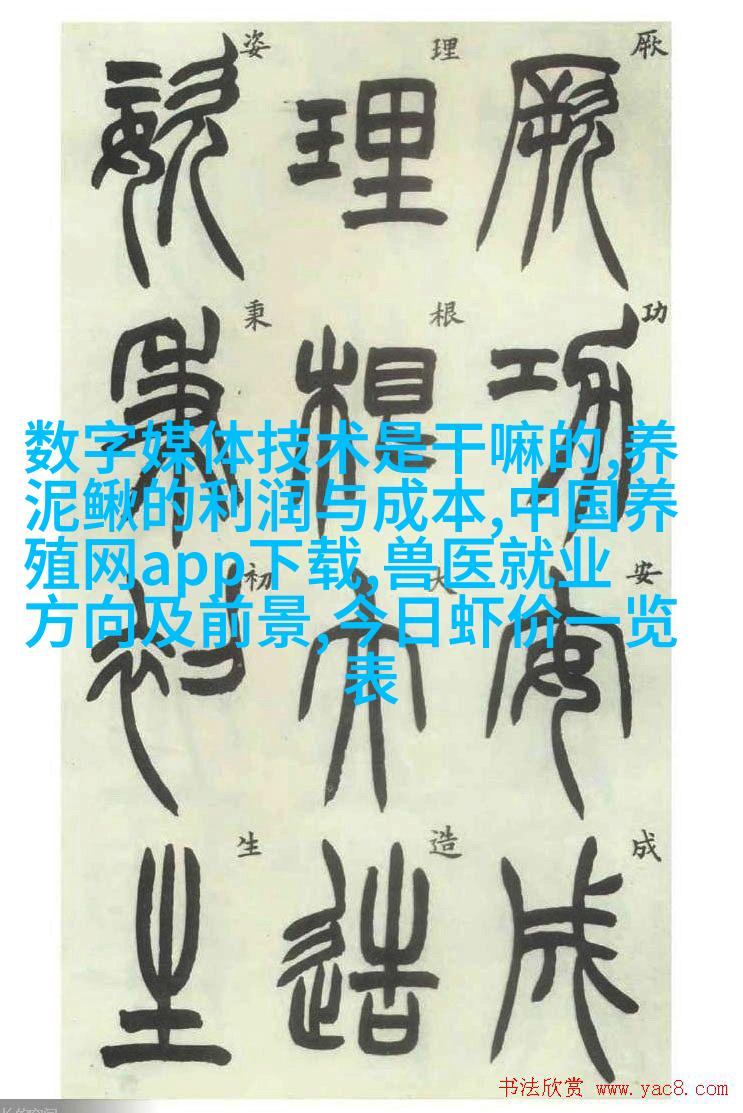 厥功安成
厥功安成
理根大造
理根大造
姿秉初生
姿秉初生
数字媒体技术是干嘛的,养
泥鳅的利润与成本,中国养
殖网app下载,兽医就业
方向及前景,今日虾价一览
表
书法欣赏 www.yac8.com